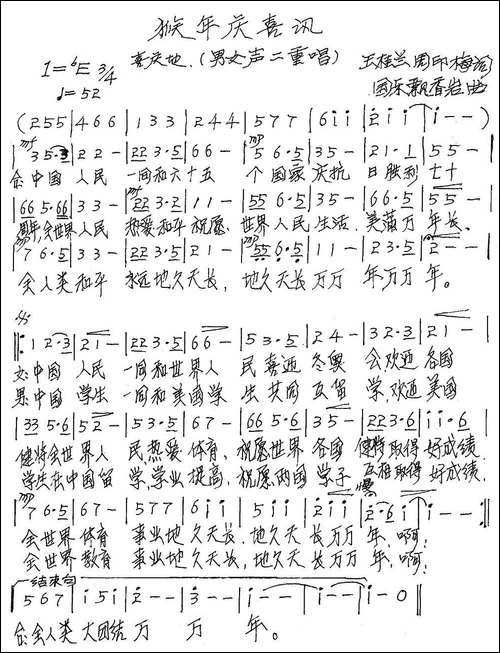 猴年庆喜讯
1=♭E 3/4 喜庆地.(男女声二重唱) 王桂兰 周印梅词
♩=52 国乐飘香岩曲
(255|466|133|244|577|6ii|2ii|i--)
mf 35·3|22-|22 3·5|66-|mp 5 6·5|35-|21·1|55-|
合:中国 人民 一同和六十五 个 国家 庆抗 日胜利 七十
66 5·66|33-|22 3·2|11-|55 6·5|35-|66·5|55-|
周年,全世界人民 热爱和平 祝愿, 世界人民 生活 美满万 年长.
76·5|33-|22 3·5|21-|55 6·5|11-|23·5|2--|
全人类和平 永远地久天长, 地久天长万万 年,万万 年。
|:12·3|21-|22 3·5|66-|53·5|24-|32·3|21-|
女:中国 人民 一同和世界人 民 喜迎 冬奥 会欢迎 各国
男:中国 学生 一同和美国学 生 共同 互留 学,欢迎 美国
33 5·6|52-|53·5|67-|66 5·6|35-|22 3·6|ii·6|
健将全世界人 民,热爱 体育, 祝愿世界 各国 健将取得 好成绩.
学生在中国留 学,学业 提高, 祝愿两国 学子 互相取得 好成绩.
76·5|67-|577|6ii|5ii|2ii|2·6i|i--:|
全世界 体育 事业地 久天长, 地久天 长万万 年,啊;
全世界 教育 事业地 久天长, 地久天 长万万 年,啊;
结束句
567|i5i|2--|3--|i--|i--|i-0||
合:全人类 大团结 万 万 年。